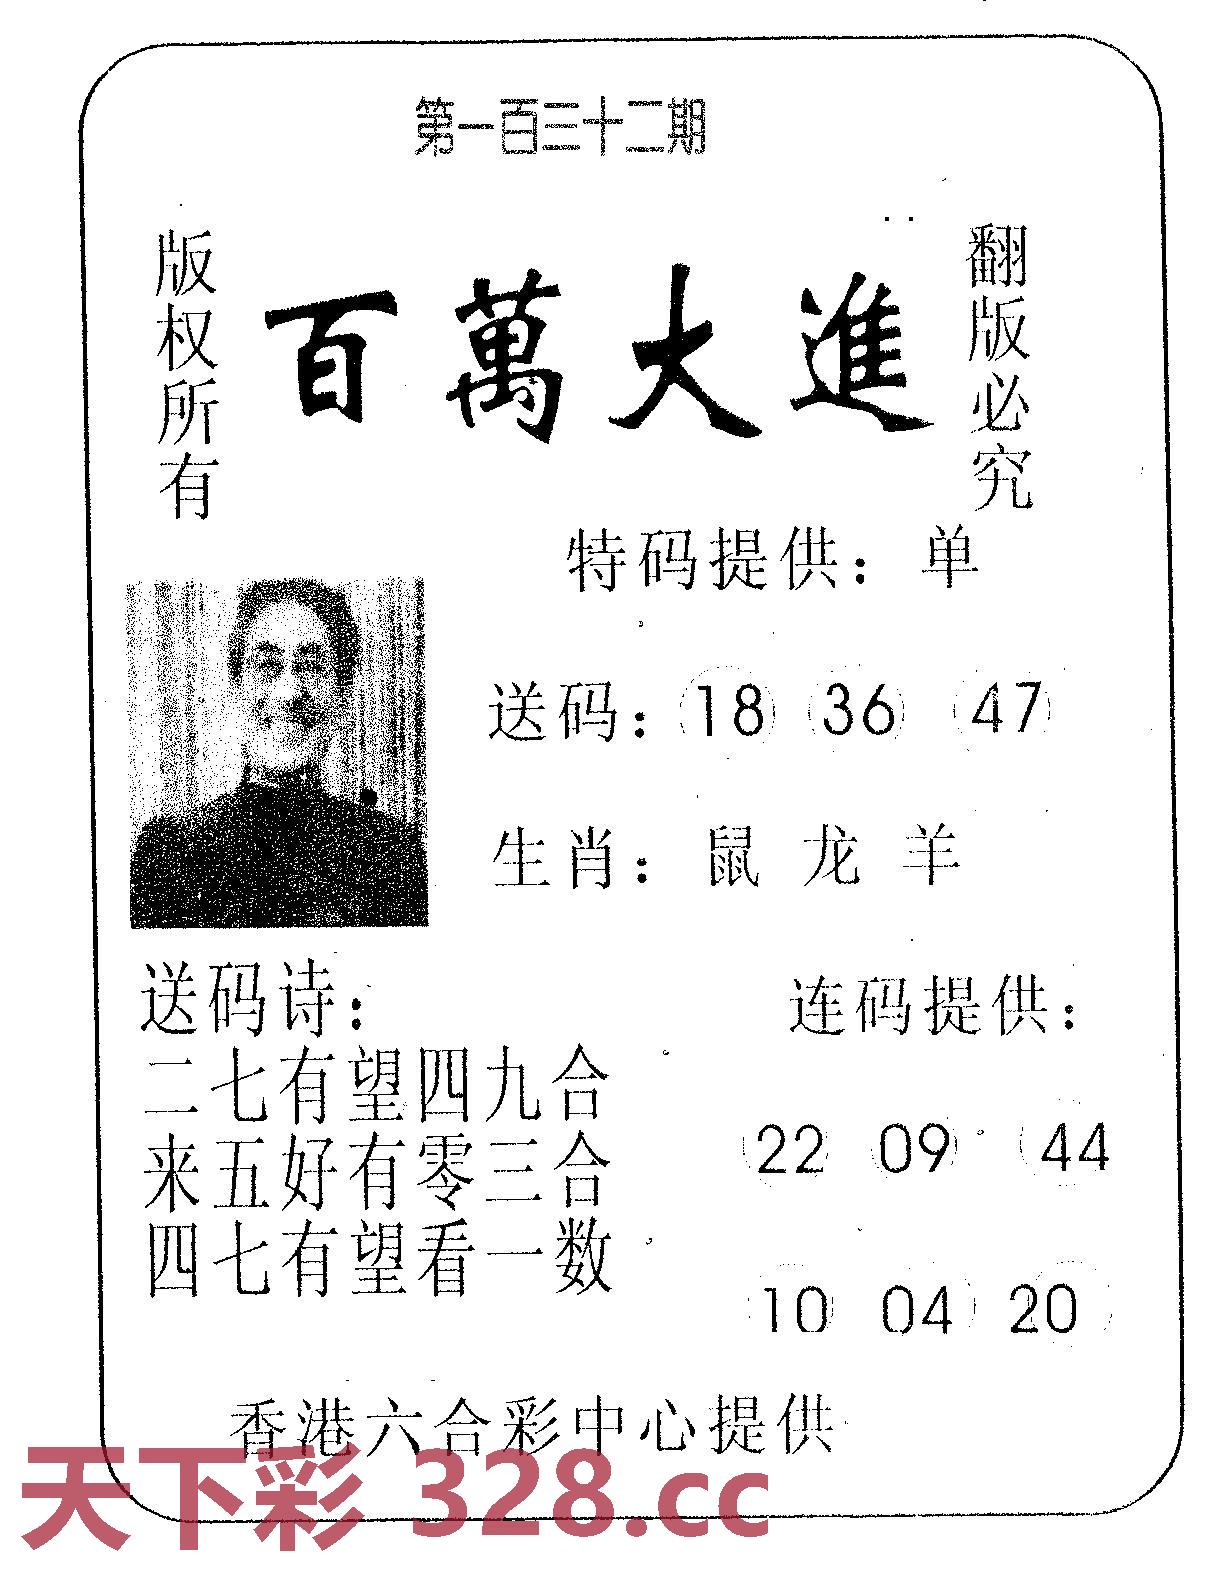 第一百三十二期
版权所有
百萬大進
翻版必究
特码提供：单
送码：18 36 47
生肖：鼠 龙 羊
送码诗：
二七有望四九合
来五好有零三合
四七有望看一数
连码提供：
22 09 44
10 04 20
香港六合彩中心提供
天下彩 328.cc